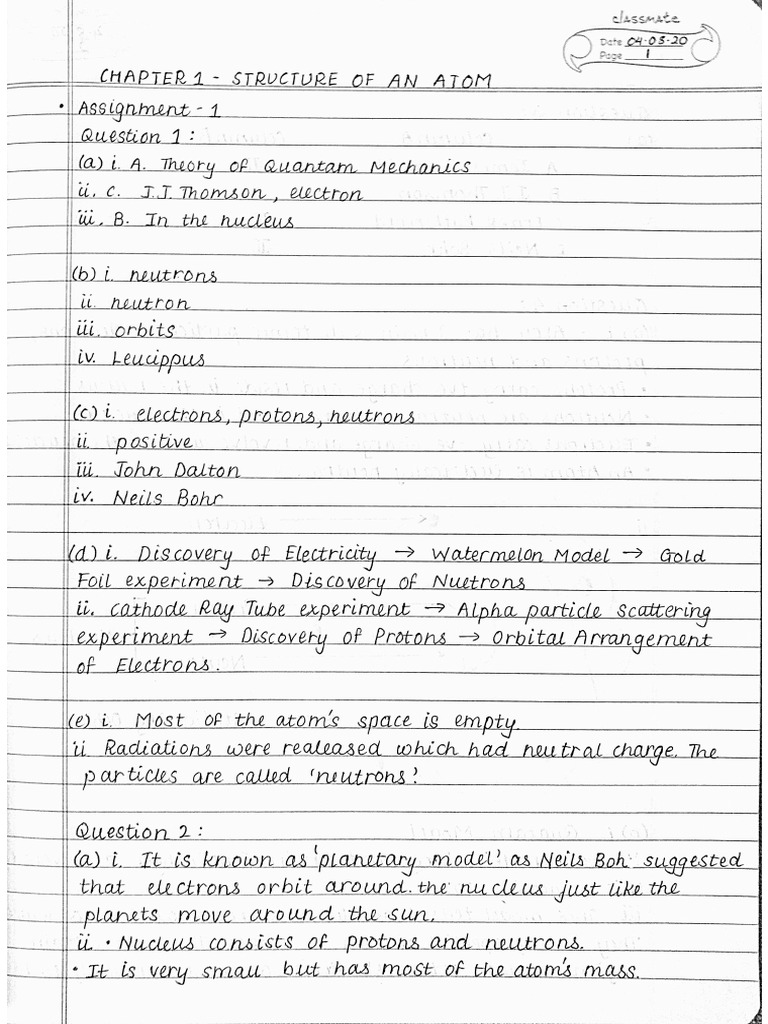 classmate
Date 04-03-20
Page 1
CHAPTER 1 - STRUCTURE OF AN ATOM
• Assignment - 1
Question 1:
(a) i. A. Theory of Quantam Mechanics
ii. C. J.J. Thomson, electron
iii. B. In the nucleus
(b) i. neutrons
ii. neutron
iii. orbits
iv. Leucippus
(c) i. electrons, protons, neutrons
ii. positive
iii. John Dalton
iv. Neils Bohr
(d) i. Discovery of Electricity → Watermelon Model → Gold
Foil experiment → Discovery of Nuetrons
ii. Cathode Ray Tube experiment → Alpha particle scattering
experiment → Discovery of Protons → Orbital Arrangement
of Electrons.
(e) i. Most of the atom's space is empty.
ii. Radiations were realeased which had neutral charge. The
particles are called 'neutrons'.
Question 2:
(a) i. It is known as 'planetary model' as Neils Boh suggested
that electrons orbit around. the nucleus just like the
planets move around the sun.
ii. • Nucleus consists of protons and neutrons.
• It is very small but has most of the atom's mass.